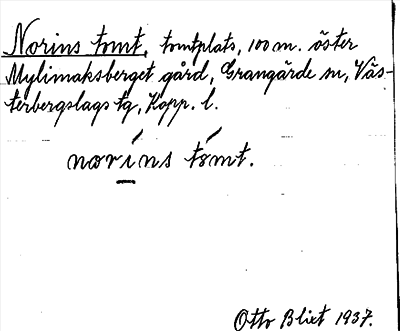 Norins tomt, tomtplats, 100 m. öster
Mylimaksberget gård, Grangärde sn, Väs-
terbergslags tg, Kopp. l.
norins tomt.
Otto Blixt 1937.